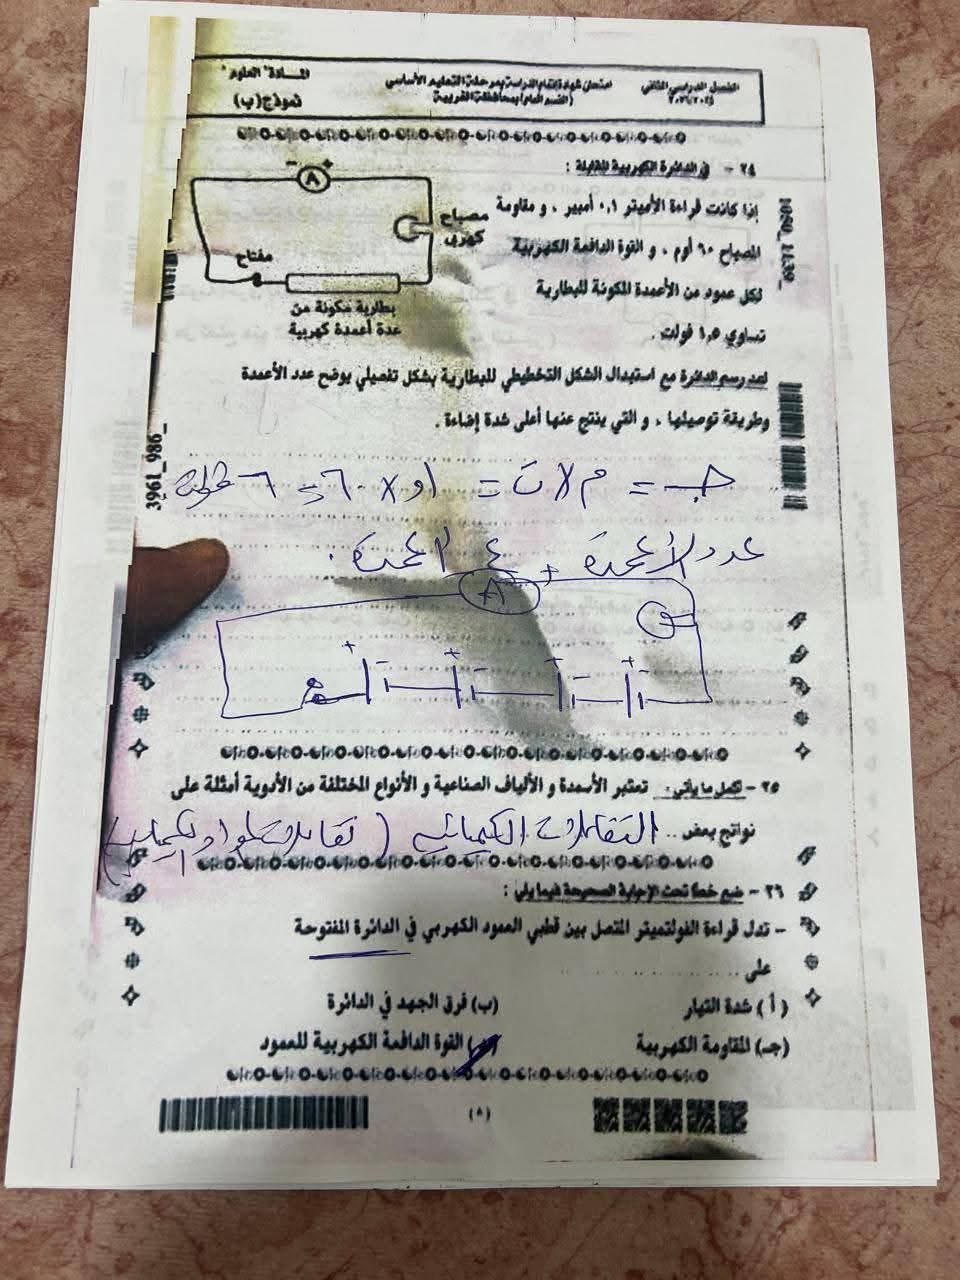 الفصل الدراسي الثاني
٢٠٢٦/٢٠٢٥
امتحان شهادة إتمام الدراسة بمرحلة التعليم الأساسي
(القسم العام) بمحافظة الغربية
المادة "العلوم"
نموذج (ب)
٢٤ - في الدائرة الكهربية المقابلة :
إذا كانت قراءة الأميتر ٠,١ أمبير ، و مقاومة
المصباح ٦٠ أوم ، و القوة الدافعة الكهربية
لكل عمود من الأعمدة المكونة للبطارية
تساوي ١,٥ فولت .
- A +
مصباح
كهربي
مفتاح
بطارية مكونة من
عدة أعمدة كهربية
أعد رسم الدائرة مع استبدال الشكل التخطيطي للبطارية بشكل تفصيلي يوضح عدد الأعمدة
وطريقة توصيلها ، و التي ينتج عنها أعلى شدة إضاءة .
3961_986_
جـ = م × ت = ٠,١ × ٦٠ = ٦ فولت
عدد الأعمدة = ٤ أعمدة .
A +
+ - + - + - + -
٢٥ - أكمل ما يأتي : تعتبر الأسمدة و الألياف الصناعية و الأنواع المختلفة من الأدوية أمثلة على
نواتج بعض .. التفاعلات الكيميائية
٢٦ - ضع خطًا تحت الإجابة الصحيحة فيما يلي :
- تدل قراءة الفولتميتر المتصل بين قطبي العمود الكهربي في الدائرة المفتوحة
على ..............
(أ) شدة التيار (ب) فرق الجهد في الدائرة
(جـ) المقاومة الكهربية (د) القوة الدافعة الكهربية للعمود
(٨)